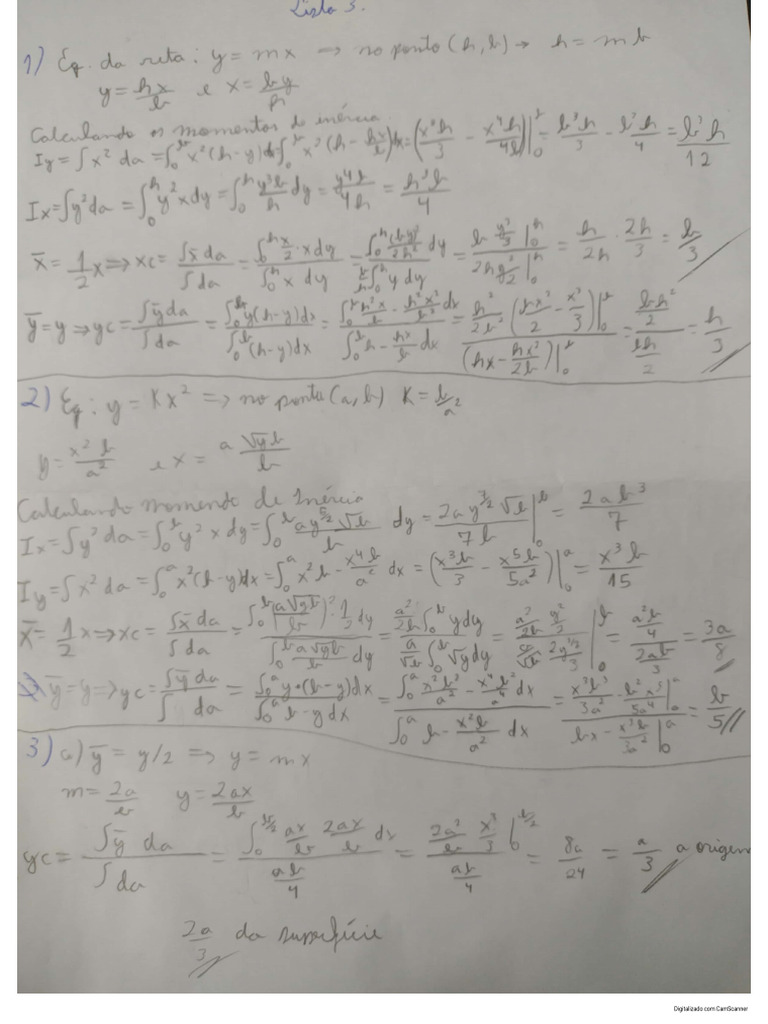 Lista 3.
1) Eq. da reta: y = mx → no ponto (h, b) → h = mb
y = hx/b e x = by/h
Calculando os momentos de inércia
Iy = ∫x² da = ∫₀ᵇ x²(h-y)dx = ∫₀ᵇ x²(h - hx/b)dx = (x³h/3 - x⁴h/4b)|₀ᵇ = b³h/3 - b³h/4 = b³h/12
Ix = ∫y² da = ∫₀ʰ y² x dy = ∫₀ʰ y³b/h dy = y⁴b/4h = h³b/4
x̄ = 1/2 x ⇒ xc = ∫x̄ da/∫da = ∫₀ʰ x/2 · x dy/∫₀ʰ x dy = ∫₀ʰ (by)²/2h² dy / b/h ∫₀ʰ y dy = b y³/3|₀ʰ / 2h y²/2|₀ʰ = h/2h · 2h/3 = b/3
ȳ = y ⇒ yc = ∫ȳ da/∫da = ∫₀ᵇ y(h-y)dx/∫₀ᵇ (h-y)dx = ∫₀ᵇ h²x/b - h²x²/b² dx / ∫₀ᵇ h - hx/b dx = h²/2b² (bx²/2 - x³/3)|₀ᵇ / (hx - hx²/2b)|₀ᵇ = bh²/2 / bh/2 = h/3
2) Eq: y = Kx² ⇒ no ponto (a, b) K = b/a²
y = x²b/a² e x = a√yb/b
Calculando momento de Inércia
Ix = ∫y² da = ∫₀ᵇ y² x dy = ∫₀ᵇ ay^5/2 √b/b dy = 2a y^7/2 √b/7b |₀ᵇ = 2ab³/7
Iy = ∫x² da = ∫₀ᵃ x²(b-y)dx = ∫₀ᵃ x²b - x⁴b/a² dx = (x³b/3 - x⁵b/5a²)|₀ᵃ = x³b/15
x̄ = 1/2 x ⇒ xc = ∫x̄ da/∫da = ∫₀ᵇ (a√yb/b)² · 1/2 dy / ∫₀ᵇ a√yb/b dy = a²/2b ∫₀ᵇ y dy / a/√b ∫₀ᵇ √y dy = a²/2b y²/2 / a/√b 2y^3/2/3 |₀ᵇ = a²b/4 / 2ab/3 = 3a/8
ȳ = y ⇒ yc = ∫ȳ da/∫da = ∫₀ᵃ y·(b-y)dx/∫₀ᵃ b-y dx = ∫₀ᵃ x²b²/a² - x⁴b²/a⁴ dx / ∫₀ᵃ b - x²b/a² dx = x³b²/3a² - b²x⁵/5a⁴|₀ᵃ / bx - x³b/3a²|₀ᵃ = b/5
3) a) ȳ = y/2 ⇒ y = mx
m = 2a/b y = 2ax/b
yc = ∫ȳ da/∫da = ∫₀^b/2 ax/b 2ax/b dx / ab/4 = 2a²/b x³/3|₀^b/2 / ab/4 = 8a/24 = a/3 a origem
2a/3 da superfície
Digitalizado com CamScanner